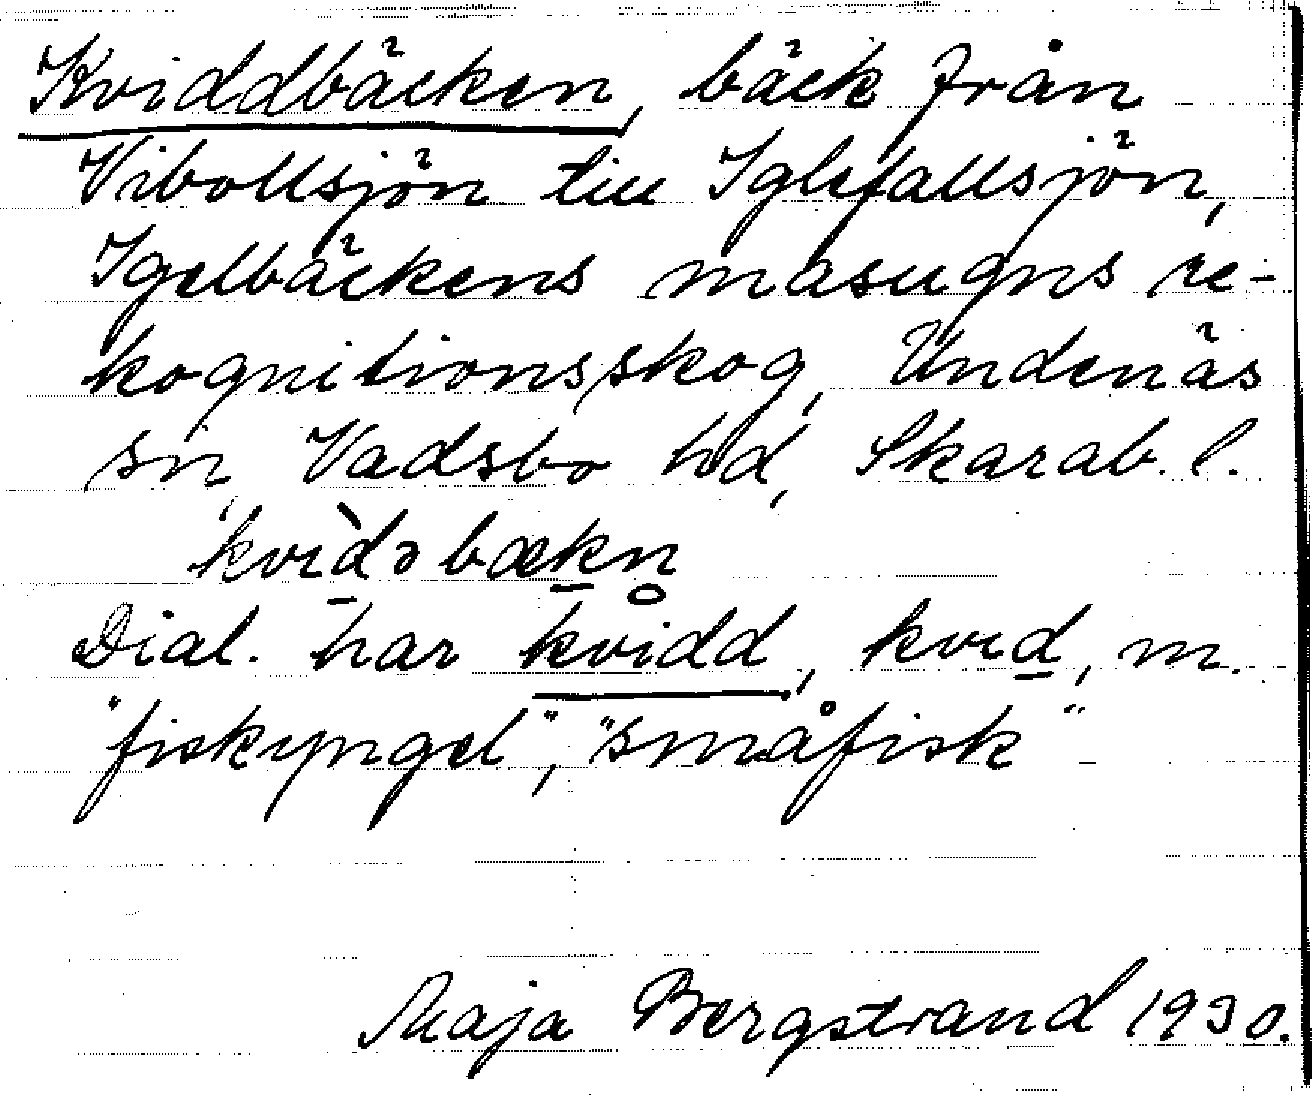 Kviddbäcken, bäck från
Vibollsjön till Iglefallsjön,
Igelbäckens masugns re-
kognitionsskog, Undenäs
sn, Vadsbo hd, Skarab. l.
kvìdəbækn̥
Dial. har kvidd, kvid, m.
"fiskyngel", "småfisk"
Maja Bergstrand 1930.